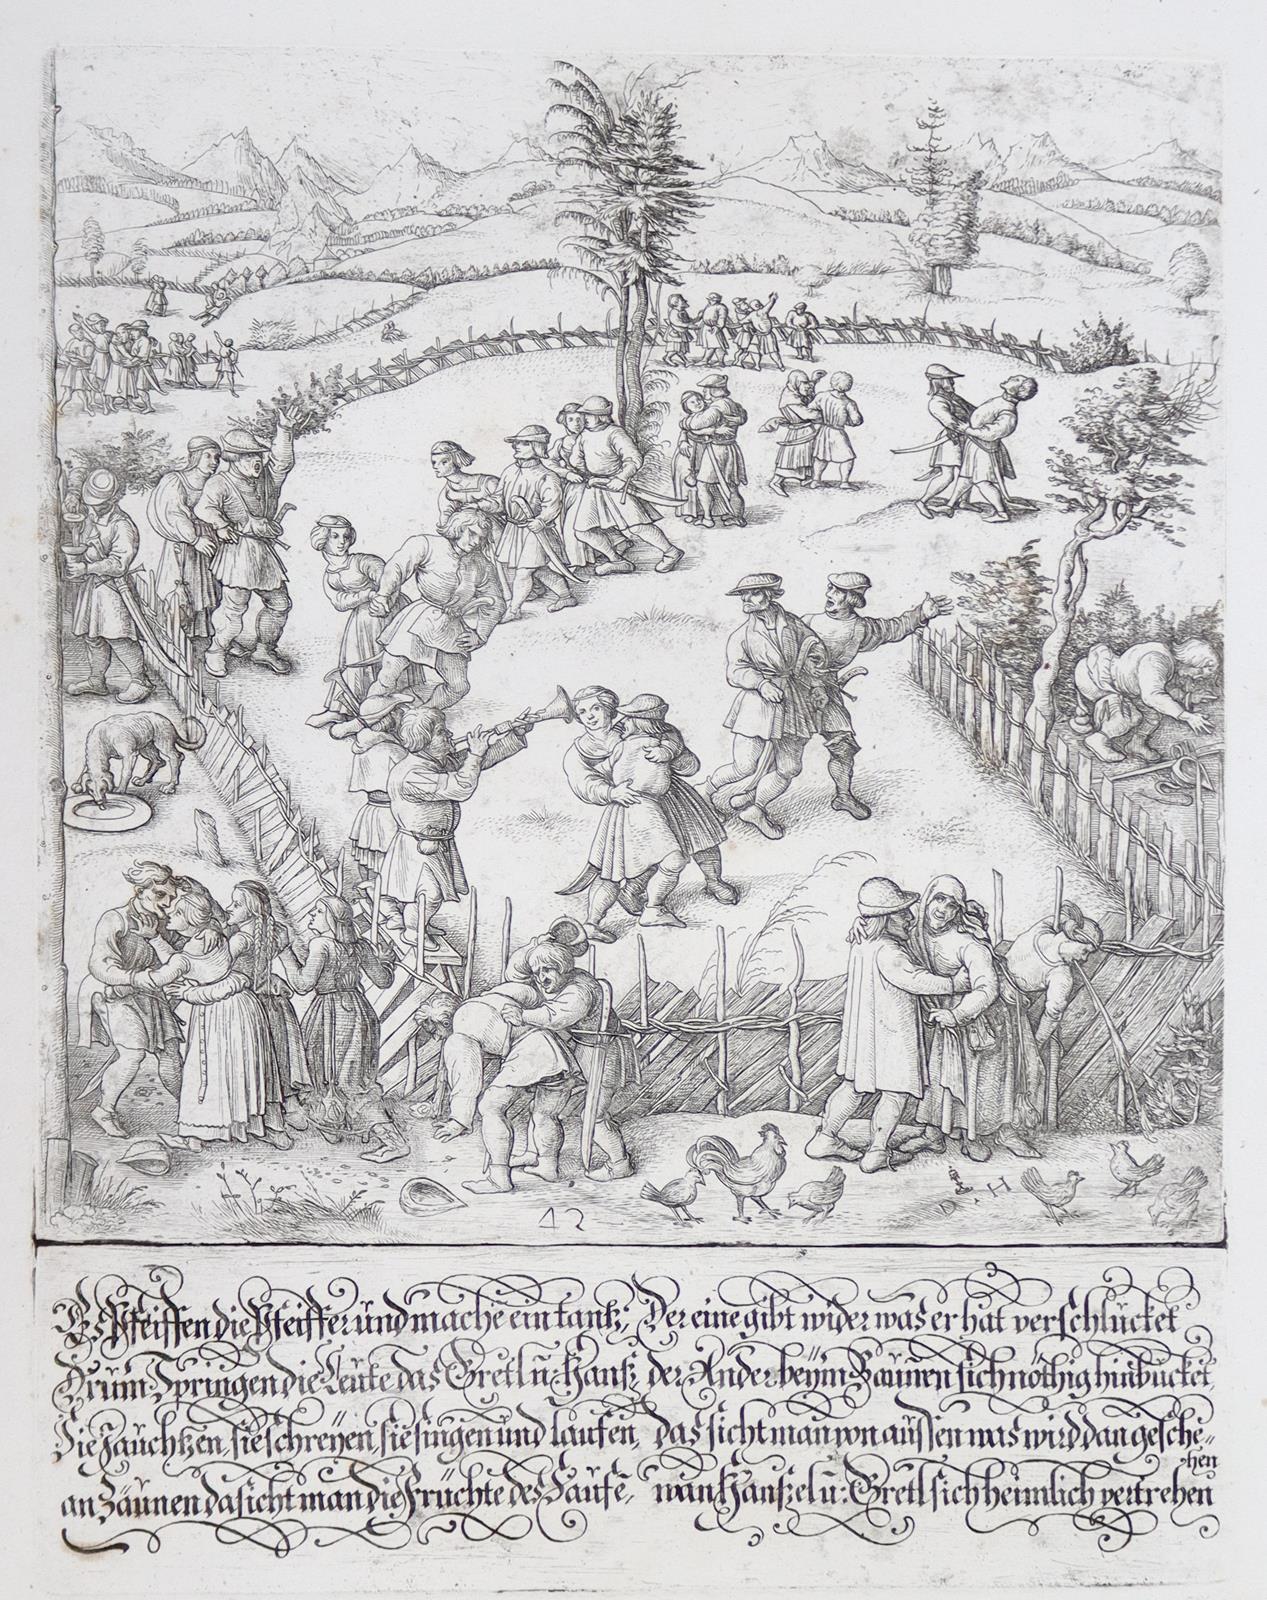 42
D H
Es Pfeiffen die Pfeiffer und mache ein tantz, Der eine gibt wider was er hat verschlücket
Drüm Springen die Leüte das Gretl ü: Hansz, der Ander beÿm Zaünen sich nöthig hinbücket,
Die Jauchtzen, sie schreÿen, sie singen und laufen, das sicht man von aüssen was wird dan gesche-
hen
an Zäünen da sicht man die Früchte des Saufe, wan Hanszel ü: Gretl sich heimlich